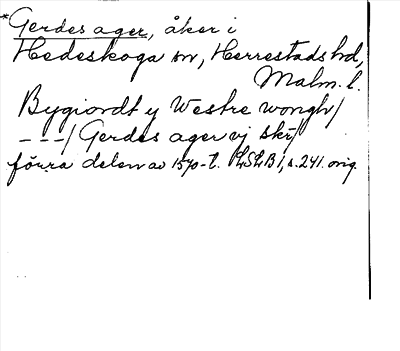 *Gerdes ager, åker i
Hedeskoga sn, Herrestads hd,
Malm. l.
Bygiordt y Westre wongh/
---/ Gerdes ager vj skr/
förra delen av 1570-t. LSLB1, s. 241. orig.